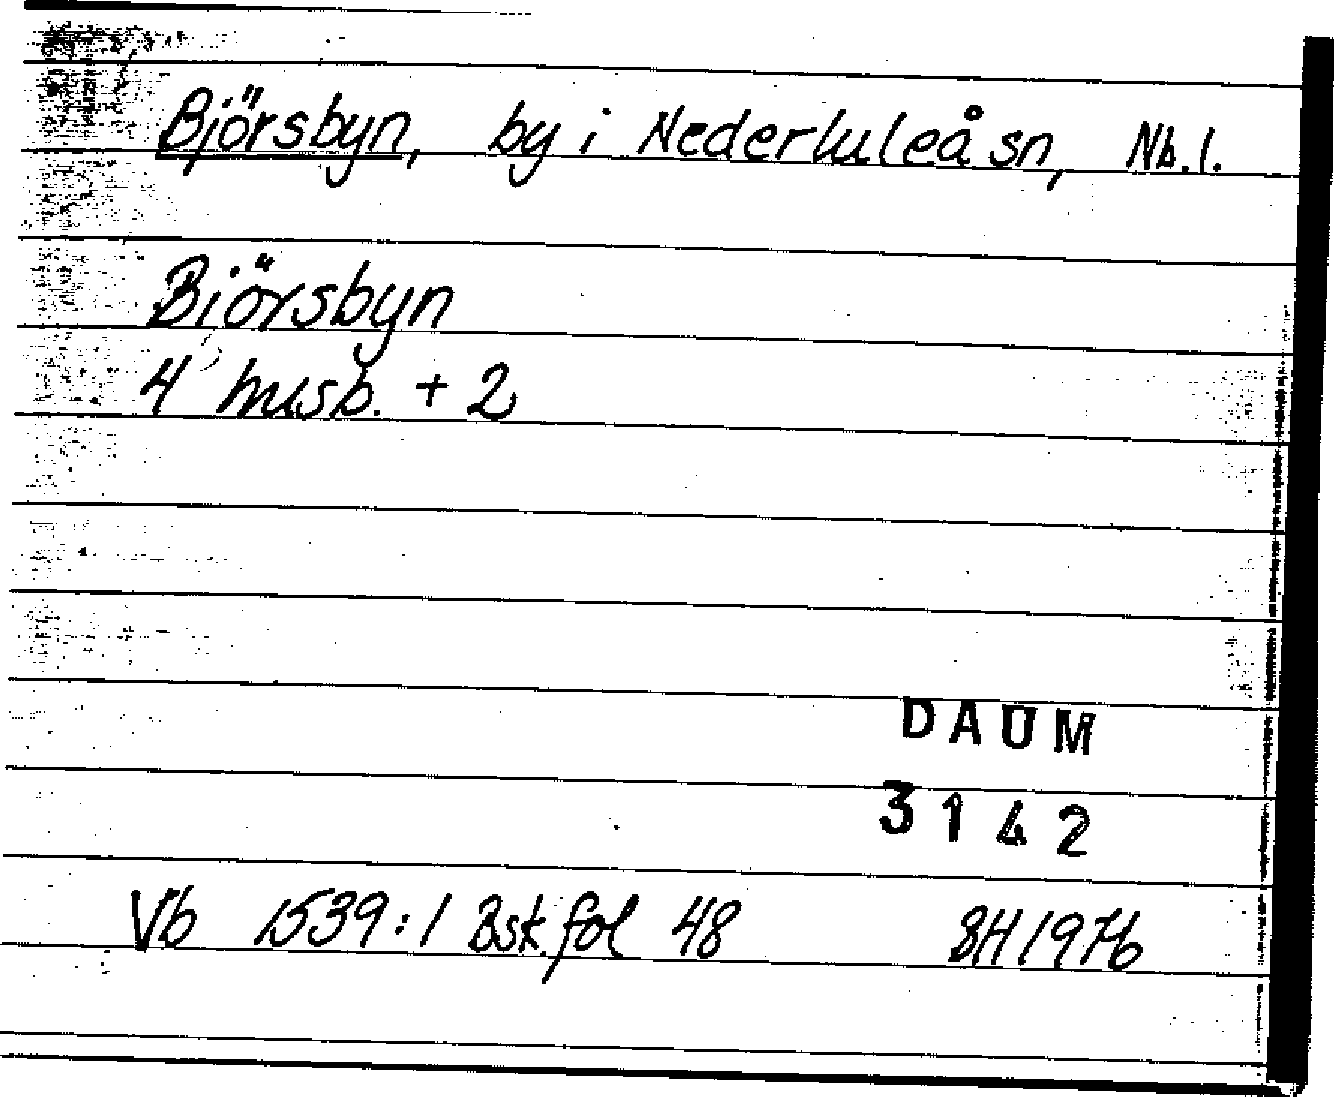 Björsbyn, by i Nederluleå sn, Nb. l.
Biörsbyn
4 husb. + 2
DAUM
3142
Vb 1539:1 Bsk. fol 48 BH 1976